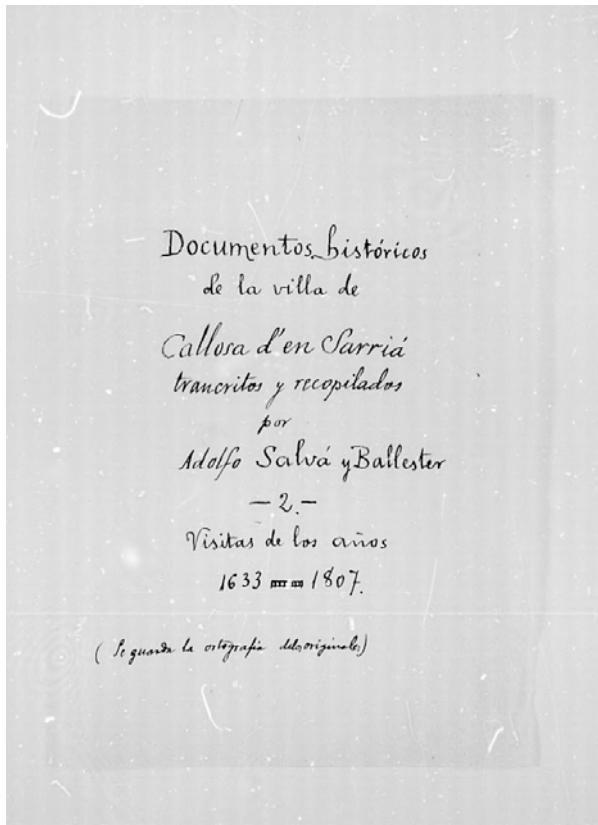 Documentos históricos
de la villa de
Callosa d'en Sarriá
trancritos y recopilados
por
Adolfo Salvá y Ballester
— 2. —
Visitas de los años
1633 == 1807.
(Se guarda la ortografía de los originales)